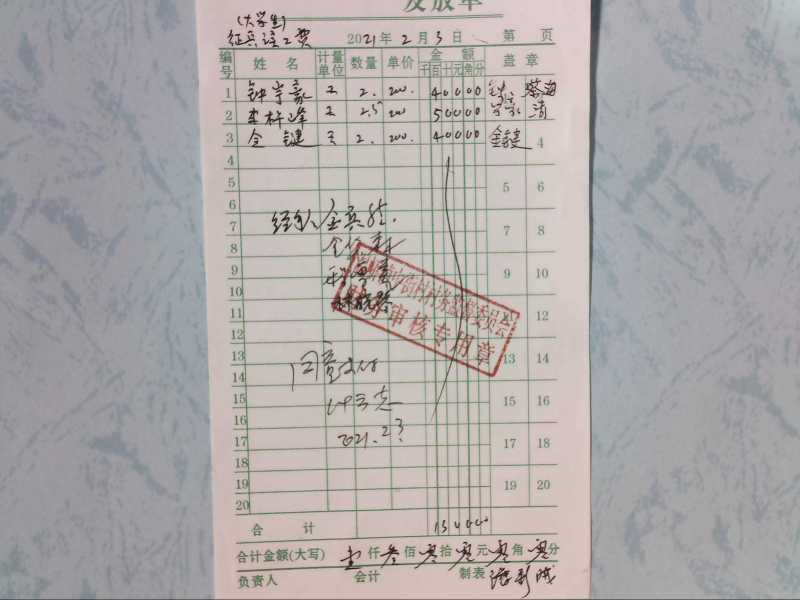 发放单
(大学生)
征兵误工费 2021年2月3日 第 页
编号 姓 名 计量单位 数量 单价 金 额 盖 章
千百十元角分
1 钟宇豪 天 2. 200. 40000
2 李梓峰 天 2.5 200 50000
3 金键 天 2. 200. 40000 金键 4
4
5 5 6
6
7 经办人 7 8
8
9 9 10
10
11 12
12
13 13 14
14 同意支付
15 15 16
16
17 2021.2.3 17 18
18
19 19 20
20
财务审核专用章
合 计 130000
合计金额(大写) 壹仟叁佰零拾零元零角零分
负责人 会计 制表